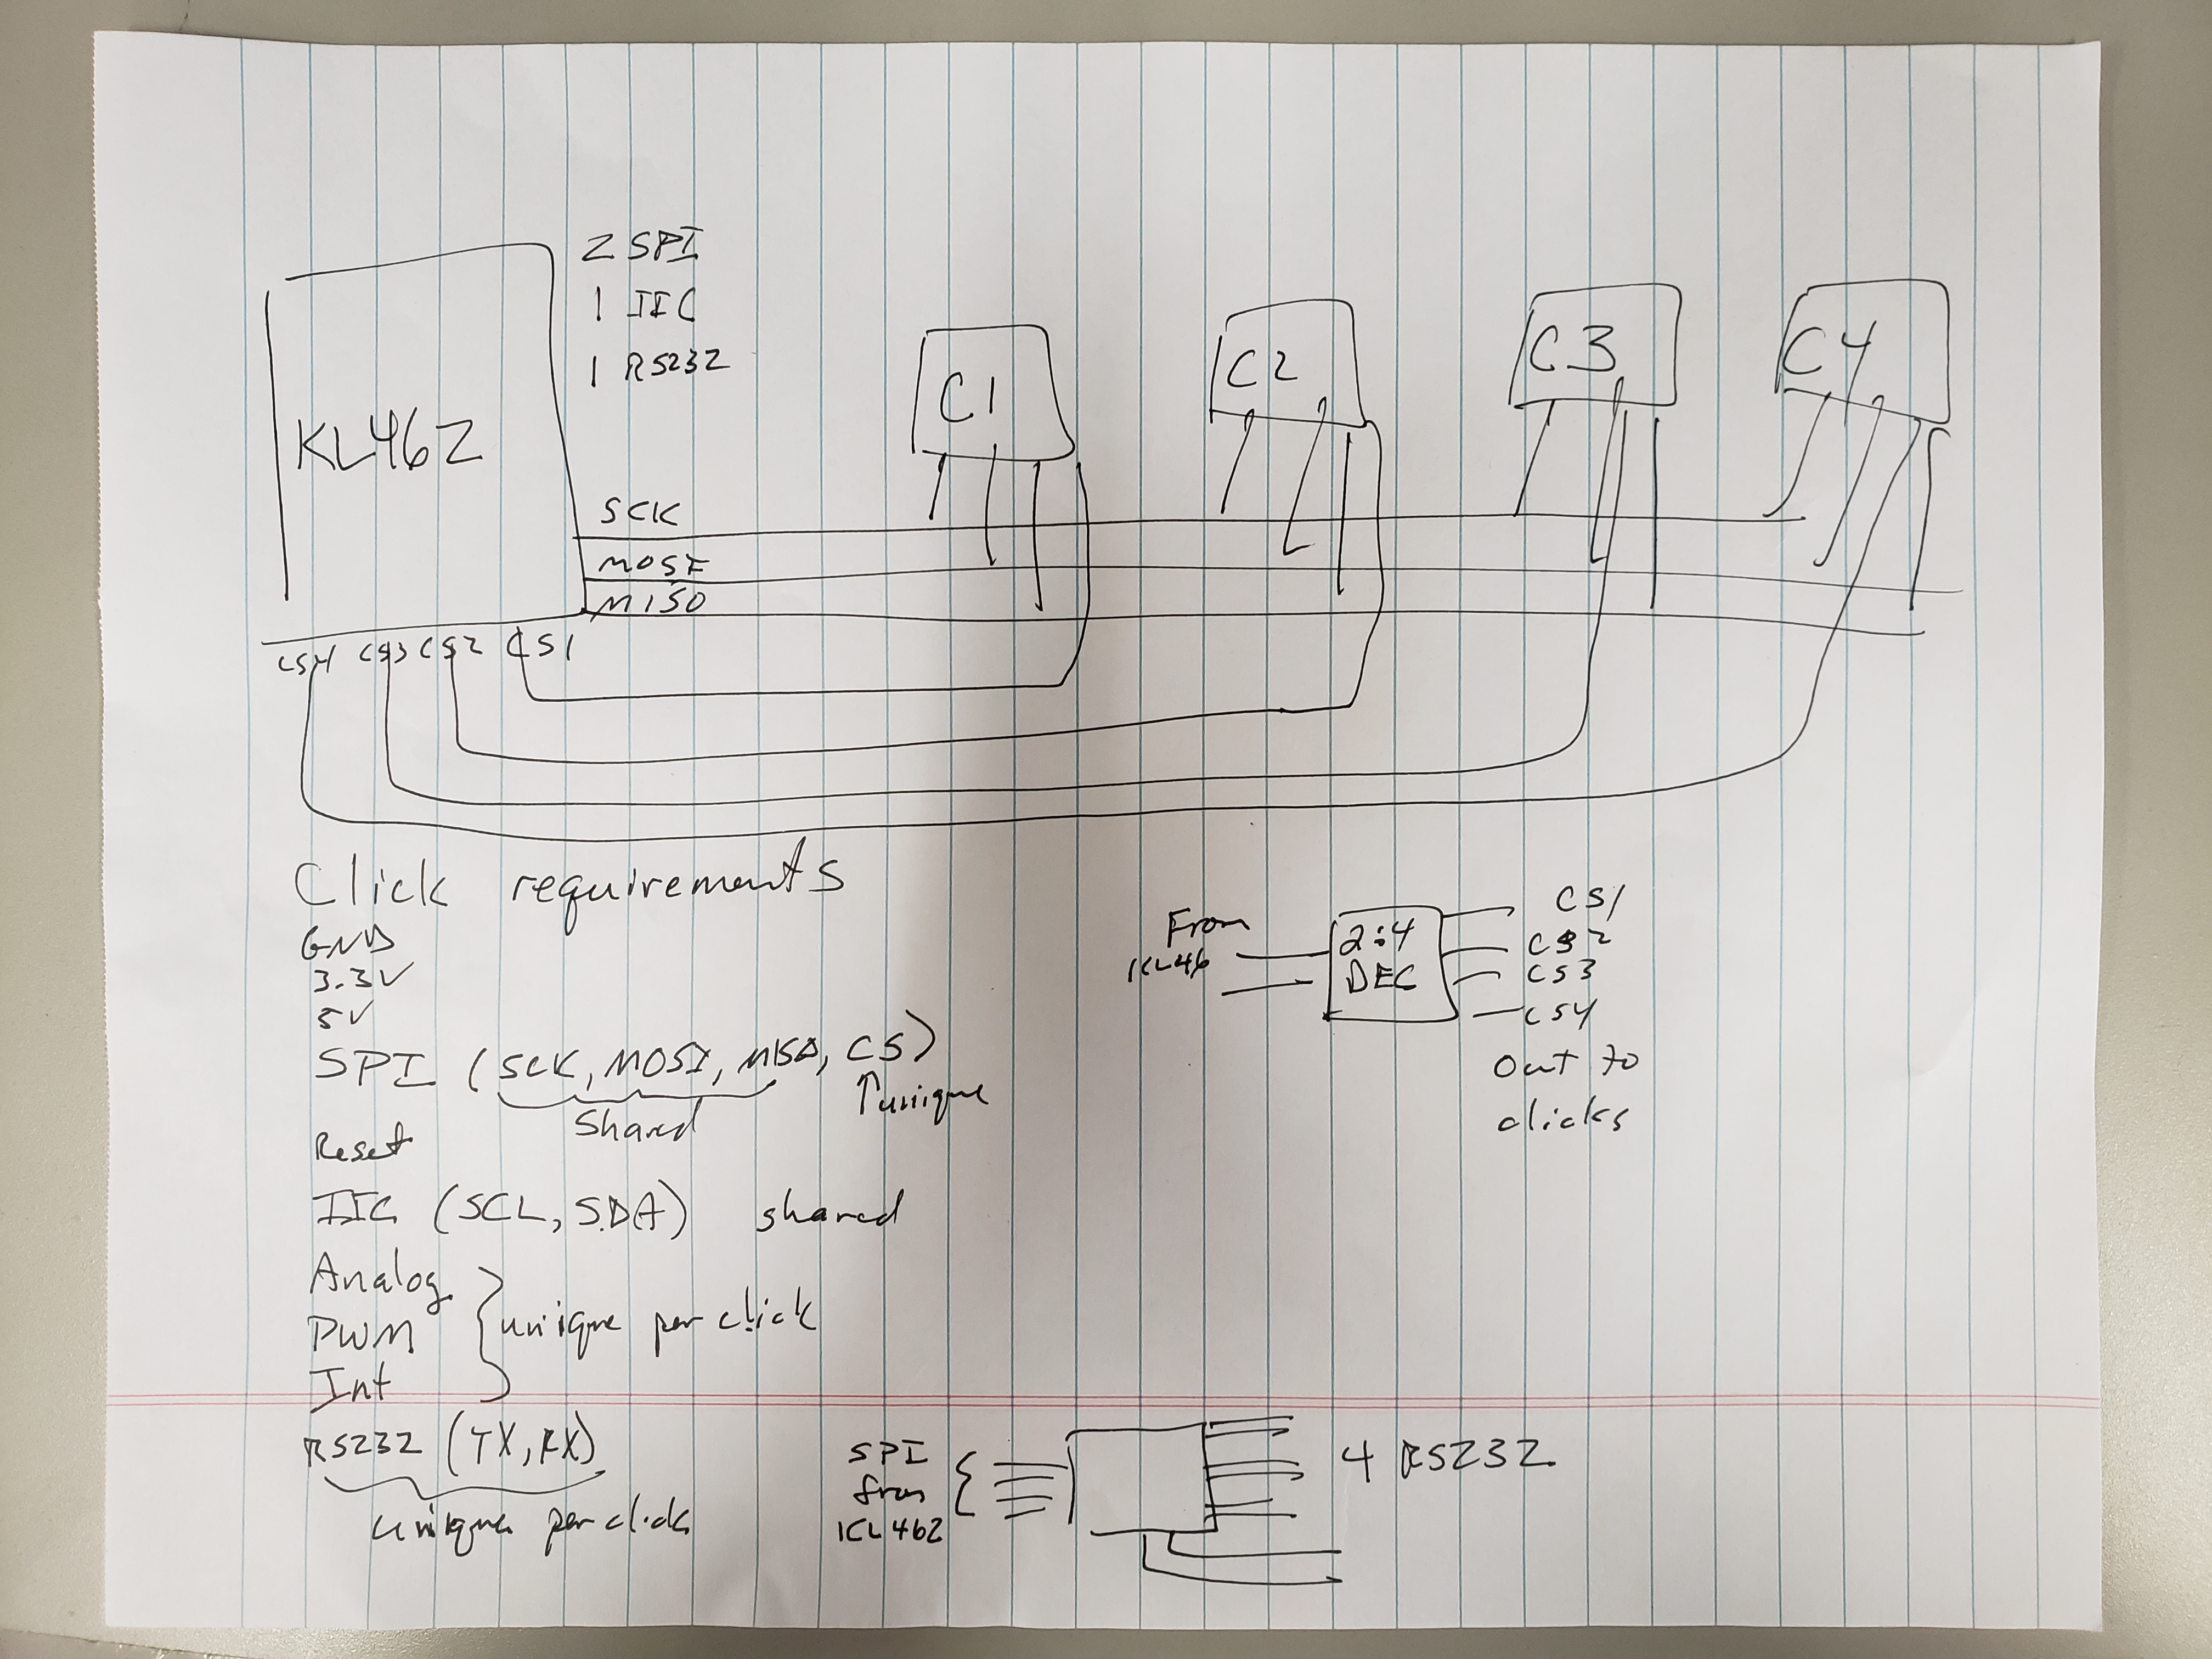 2 SPI
1 IIC
1 RS232
KL46Z
C1
C2
C3
C4
SCK
MOSI
MISO
CS4 CS3 CS2 CS1
Click requirements
GND
3.3V
5V
SPI (SCK, MOSI, MISO, CS)
Shared
↑unique
Reset
IIC (SCL, SDA) shared
Analog
PWM
Int
unique per click
RS232 (TX, RX)
unique per click
From
KL46
2:4
DEC
CS1
CS2
CS3
CS4
Out to
clicks
SPI
from
KL46Z
4 RS232